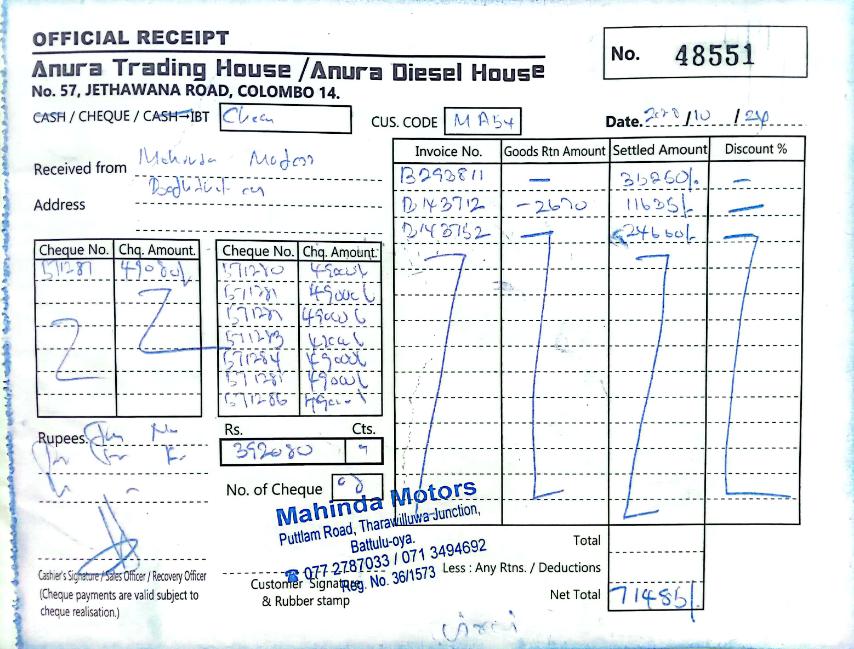 OFFICIAL RECEIPT
No. 48551
Anura Trading House / Anura Diesel House
No. 57, JETHAWANA ROAD, COLOMBO 14.
CASH / CHEQUE / CASH-IBT
CUS. CODE MA54
Date. /10 /
Received from Mahinda Motors
Address
Invoice No. Goods Rtn Amount Settled Amount Discount %
B293811 —  —
B143712 -2670 11635/- —
B143752 — 24660/- —
Cheque No. Chq. Amount. Cheque No. Chq. Amount.
571287 49080/- 571280 49000/-
571281 49000/-
49000/-
571283
571284 49000/-
49000/-
571286
Rupees.
Rs. Cts.
392080
No. of Cheque 08
Mahinda Motors
Puttlam Road, Tharawilluwa Junction,
Battulu-oya.
☎ 077 2787033 / 071 3494692
Reg. No. 36/1573
Total
Less : Any Rtns. / Deductions
Net Total 71485/-
Cashier's Signature / Sales Officer / Recovery Officer
(Cheque payments are valid subject to
cheque realisation.)
Customer Signature
& Rubber stamp